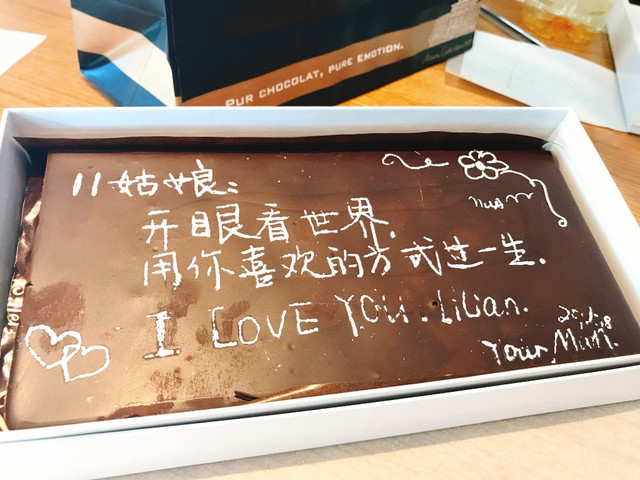 PUR CHOCOLAT, PURE EMOTION.
11姑娘:
开眼看世界.
用你喜欢的方式过一生.
I LOVE YOU. Lilian.
Your Mum.